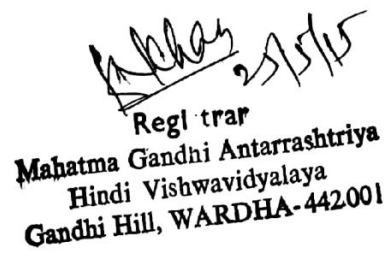 25/5/15
Regi trar
Mahatma Gandhi Antarrashtriya
Hindi Vishwavidyalaya
Gandhi Hill, WARDHA-442001